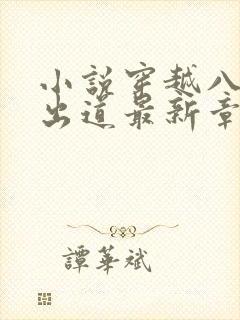 小说穿越八
出道最新章
譚華斌